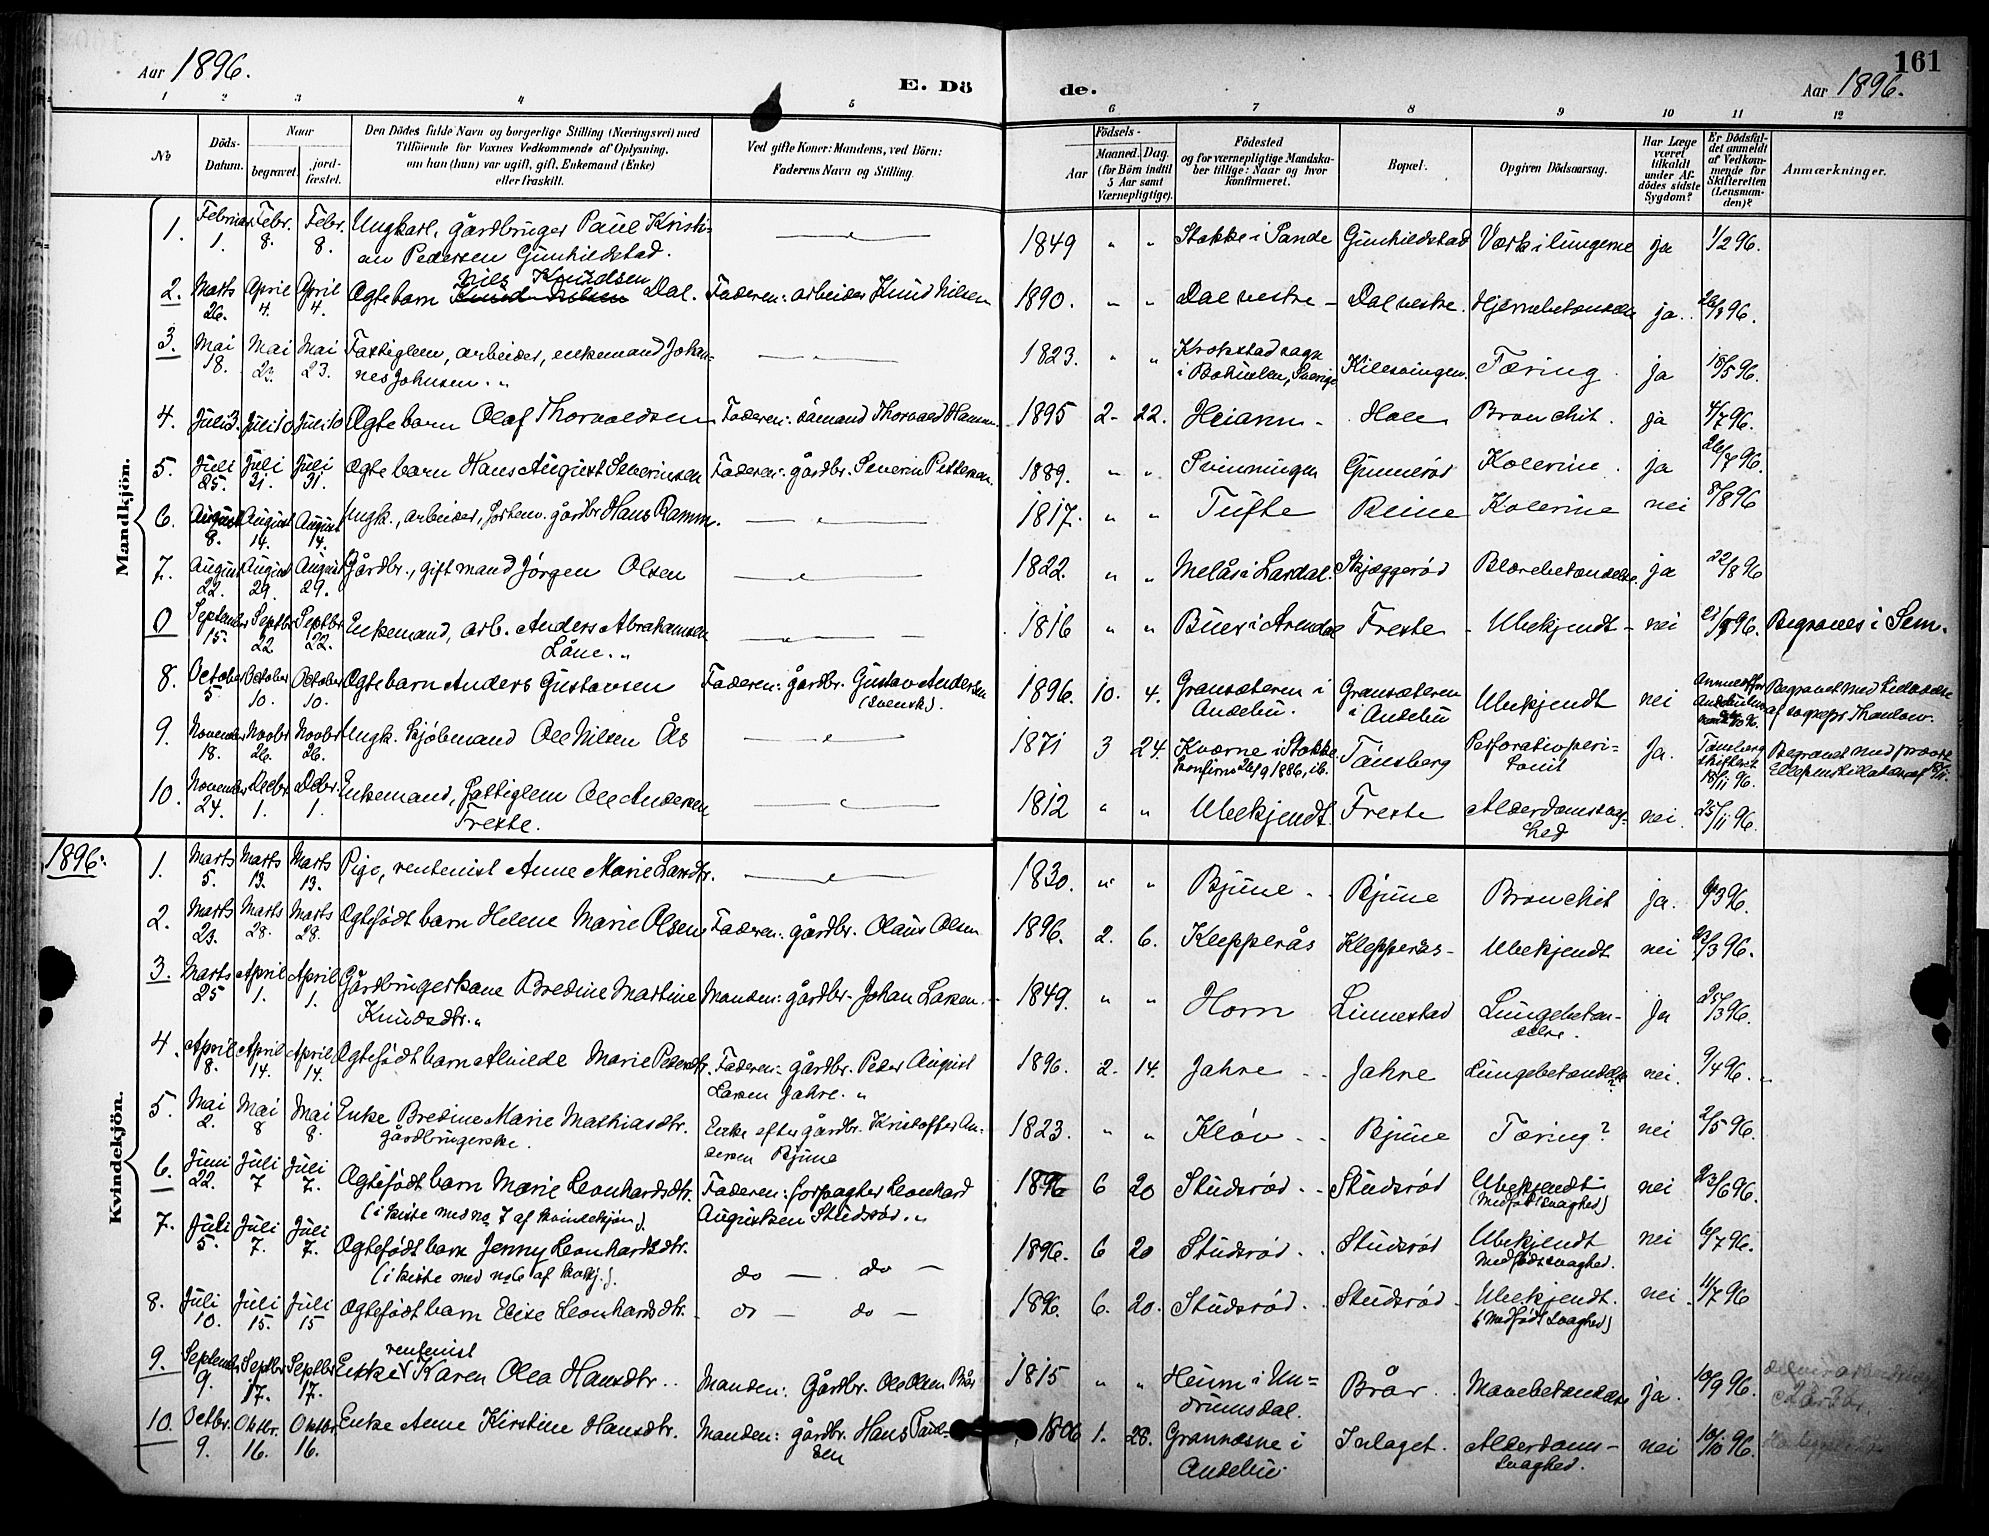 161
Aar 1896.
E. Dö de.
Aar 1896.
1 2 3 4 5 6 7 8 9 10 11 12
No
Döds-Datum.
Naar
begravet.
jordfæstet.
Den Dödes fulde Navn og borgerlige Stilling (Næringsvei) med
Tilföiende for Voxnes Vedkommende af Oplysning,
om han (hun) var ugift, gift, Enkemand (Enke)
eller fraskilt.
Ved gifte Koner: Mandens, ved Börn:
Faderens Navn og Stilling.
Födsels-
Aar
Maaned. Dag.
(for Börn indtil
5 Aar samt
Værnepligtige).
Födested
og for værnepligtige Mandskaber tillige: Naar og hvor
konfirmeret.
Bopæl.
Opgiven Dödsaarsag.
Har Læge
været
tilkaldt
under Afdödes sidste
Sygdom?
Er Dödsfaldet anmeldt
af Vedkommende for
Skifteretten
(Lensmanden)?
Anmærkninger.
Mandkjön.
1. Februar 1. Febr. 8. Febr. 8. Ungkarl, gårdbruger Paul Kristian Pedersen Gunhildstad. 1849 " " Stokke i Sande Gunhildstad Værk i lungerne ja 1/2 96.
2. Marts 26. April 4. April 4. Ægtebarn Nils Knudsen Knud Nilsen Dal. Faderen: arbeider Knud Nilsen 1890. " " Dal vestre Dal vestre. Hjernebetændelse ja. 26/3 96.
3. Mai 18. Mai 23. Mai 23. Fattiglem, arbeider, enkemand Johannes Johnsen. 1823. " " Krokstad sogn i Bohuslen, Sverige Tæring. ja 18/5 96.
4. Juli 3. Juli 10 Juli 10 Ægtebarn Olaf Thorvaldsen Faderen: sømand Thorvald Hansen 1895 2 22. Heiann Bronchit. ja 4/7 96.
5. Juli 25. Juli 31. Juli 31. Ægtebarn Hans August Severinsen Faderen: gårdbr. Severin Pettersen. 1889. " " Svinningen Gunnerød Kolerine. ja 26/7 96.
6. August 8. August 14. August 14. Ungk., arbeider, forhenv. gårdbr. Hans Ramm. 1817. " " Tufte Reine Kolerine nei 8/8 96
7. August 22. August 29. August 29. Gårdbr., gift mand Jörgen Olsen 1822. " " Melås i Lardal. Skjæggerød Blærebetændelse. ja 22/8 96
0 September 15. Septbr 22. Septbr. 22. Enkemand, arb. Anders Abrahamsen Låne. 1816 " " Buer i Arendal Freste Ubekjendt nei 21/9 96. Begraves i Sem.
8. October 5 October 10. October 10. Ægtebarn Anders Gustavsen Faderen: gårdbr. Gustav Andersen (svensk). 1896. 10. 4. Gransæteren i Andebu. Gransæteren i Andebu Ubekjendt nei Begravet med
9. November 18. Novbr 26. Novbr 26. Ungk. kjøbmand Ole Nilsen Ås 1871 3 24. Kværne i Stokke konfirm. 26/9 1886, ib. Tönsberg Perforativperitonit Ja. Tönsberg skifteret 18/11 96. Begravet med
10. November 24. Decbr 1. Decbr. 1. Enkemand, fattiglem Ole Andersen Freste. 1812 " " Ubekjendt. Freste Alderdomssvaghed nei. 25/11 96.
1896:
Kvindekjön.
1. Marts 5. Marts 13. Marts 13. Pige, rentenist Anne Marie Larsdtr. 1830. " " Bjune Bjune Bronchit ja. 6/3 96.
2. Marts 23. Marts 28. Marts 28. Ægtefödt barn Helene Marie Olsen Faderen: gårdbr. Olaus Olsen 1896. 2. 6. Klepperås Klepperås Ubekjendt nei 23/3 96.
3. Marts 25 April 1. April 1. Gårdbrugerkone Bredine Martine Knudsdtr. Manden: gårdbr. Johan Larsen. 1849. " " Horn Linnestad Lungebetændelse. Ja 25/3 96.
4. April 8. April 14. April 14. Ægtefödt barn Alvilde Marie Pedersdtr. Faderen: gårdbr. Peder August Larsen Jahre. 1896. 2. 14. Jahre Jahre Lungebetændelse nei. 9/4 96.
5. Mai 2. Mai 8 Mai 8. Enke Bredine Marie Mathiasdtr. gårdbrugerske. Enke efter gårdbr. Kristoffer Andersen Bjune 1823. " " Kløv Bjune Tæring? nei 2/5 96.
6. Juni 22. Juli 7 Juli 7. Ægtefödt barn Marie Leonhardsdtr. (i kiste med no 7 af kvindekjön). Faderen: forpagter Leonhard Augustsen Studsrød. 1896 6 20 Studsrød Studsrød Ubekjendt (Medfödt svaghed) nei 23/6 96.
7. Juli 5. Juli 7. Juli 7. Ægtefödt barn Jenny Leonhardsdtr. (i kiste med no 6 af kvkj.). do — do — 1896. 6 20 Studsrød Studsrød Ubekjendt Medfödt svaghed. nei 6/7 96.
8. Juli 10. Juli 15. Juli 15 Ægtefödt barn Elise Leonhardsdtr. do — do — 1896. 6. 20. Studsrød. Studsrød Ubekjendt. (Medfödt svaghed) nei. 11/7 96
9. September 9. Septbr 17. Septbr 17. Enke rentenist Karen Olea Hansdtr. Manden: Gårdbr. Ole Olsen Brår 1815 " " Heum i Undrumsdal. Brår Mavebetændelse ja. 10/9 96.
10. Octbr. 9. Oktbr. 16. Oktbr 16. Enke Anne Kirstine Hansdtr. Manden: gårdbr. Hans Paulsen 1806 1. 28. Grannæsne i Andebu Inlaget. Alderdomssvaghed. nei 10/10 96.